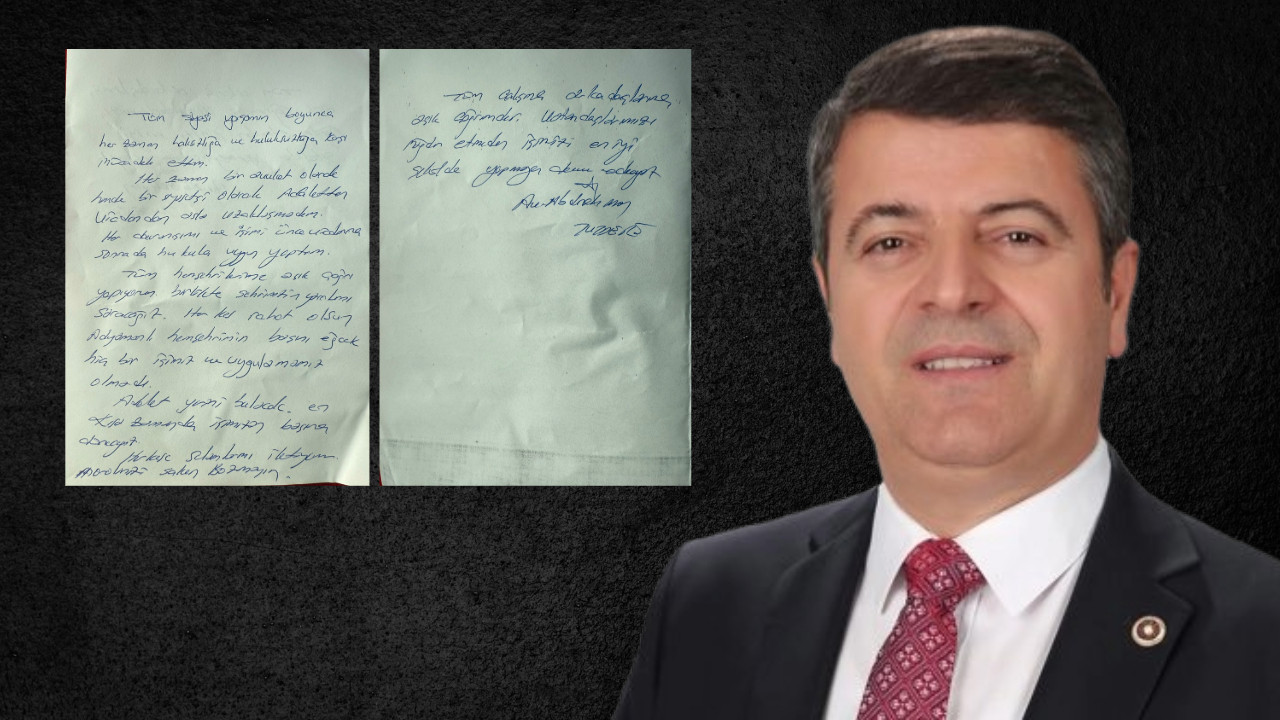 Tüm siyasi yaşamım boyunca
her zaman haksızlığa ve hukuksuzluğa karşı
mücadele ettim.
Her zaman bir avukat olarak
hemde bir siyasetçi olarak Adaletten
Vicdandan asla uzaklaşmadım.
Her davranışımı ve işimi önce vicdanıma
sonrada hukuka uygun yaptım.
Tüm hemşehrilerime açık çağrı
yapıyorum birlikte şehrimizin yaralarını
saracağız. Herkes rahat olsun
Adıyamanlı hemşehrimin başını eğecek
hiç bir işimiz ve uygulamamız
olmadı.
Adalet yerini bulacak. en
kısa zamanda işimizin başına
döneceğiz.
Herkese selamlarımı iletiyorum.
Moralinizi sakın bozmayın.
Tüm çalışma arkadaşlarıma
açık çağrımdır. Vatandaşlarımızı
mağdur etmeden işimizi en iyi
şekilde yapmaya devam edeceğiz
Av. Abdurrahman
TUTDERE